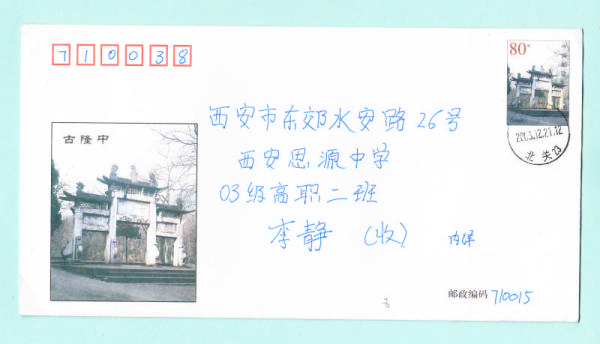 710038
80分
2003.12.21.12
北关
古隆中
西安市东郊水安路26号
西安思源中学
03级高职二班
李静 (收) 内详
邮政编码 710015